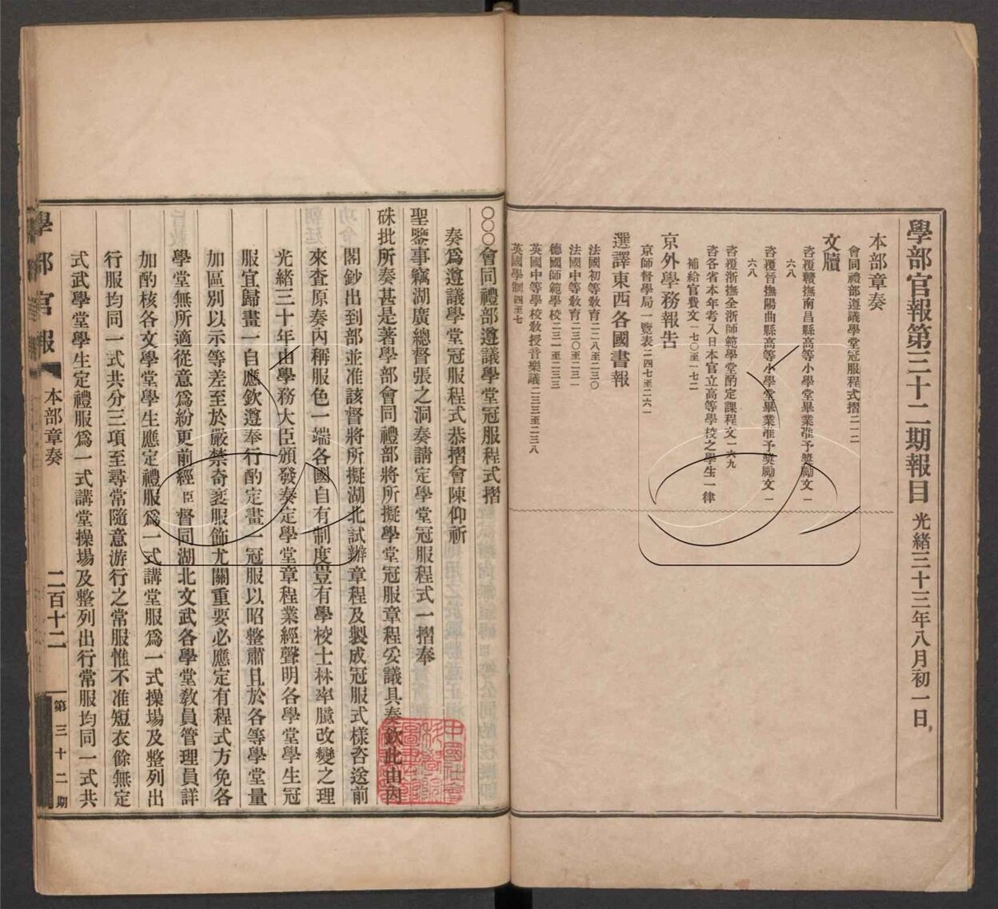 學部官報第三十二期報目 光緒三十三年八月初一日
本部章奏
會同禮部遵議學堂冠服程式摺二一二
文牘
咨覆贛撫南昌縣高等小學堂畢業准予獎勵文一
六八
咨覆晉撫陽曲縣高等小學堂畢業准予獎勵文一
六八
咨覆浙撫全浙師範學堂酌定課程文一六九
咨各省本年考入日本官立高等學校之學生一律
補給官費文一七〇至一七二
京外學務報告
京師督學局一覽表二四七至二六一
選譯東西各國書報
法國初等教育二二八至二三〇
法國中等教育二三〇至二三一
德國師範學校二三一至二三三
英國中等學校教授音樂議二三三至二三八
英國學制四至七
〇〇〇會同禮部遵議學堂冠服程式摺
奏爲遵議學堂冠服程式恭摺會陳仰祈
聖鑒事竊湖廣總督張之洞奏請定學堂冠服程式一摺奉
硃批所奏甚是著學部會同禮部將所擬學堂冠服章程妥議具奏欽此由內
閣鈔出到部並准該督將所擬湖北試辦章程及製成冠服式樣咨送前
來查原奏內稱服色一端各國自有制度豈有學校士林率臆改變之理
光緒三十年由學務大臣頒發奏定學堂章程業經聲明各學堂學生冠
服宜歸畫一自應欽遵奉行酌定畫一冠服以昭整肅且於各等學堂量
加區別以示等差至於嚴禁奇衺服飾尤關重要必應定有程式方免各
學堂無所適從意爲紛更前經臣督同湖北文武各學堂教員管理員詳
加酌核各文學堂學生應定禮服爲一式講堂服爲一式操場及整列出
行服均同一式共分三項至尋常隨意游行之常服惟不准短衣餘無定
式武學堂學生定禮服爲一式講堂操場及整列出行常服均同一式共
學部官報 本部章奏 二百十二 第三十二期